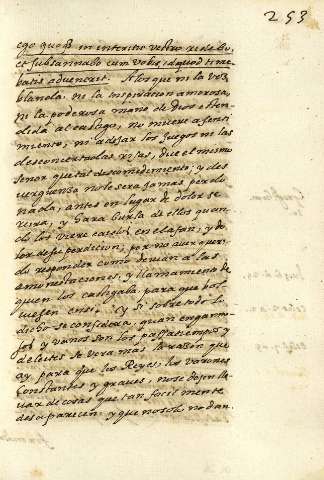 253
ego quoq̃ in interitu vestro ridebo,
et subsannabo cum vobis, id quod time
batis advenerit. A los que ni la voz
blanda, ni la inspiracion amorosa,
ni la poderosa mano de Dios esten
dida al castigo, no mueve a senti
miento, ni a dejar los juegos ni las
desconcertadas risas, dice el mismo
Señor que tal descomedimiento, y des
verguenza no le sera jamas perdo
nada, antes en lugar de dolor se
reira, y hara burla de ellos quan
do los viere caidos en el afan, y do
lor de su perdicion, por no aver queri
do responder como devian a las
amonestaciones, y llamamiento de
quien los castigaba, para que bol
viesen en si. Y si sobre todo lo
dicho se considera, quan engaño
sos y vanos son los passatiempos y
deleites se vera mas la razon que
ay, para que los Reyes, los varones
constantes y graves, no se dejen lle
var de cosas que tan facilmente
desaparecen, y que no solo no dan